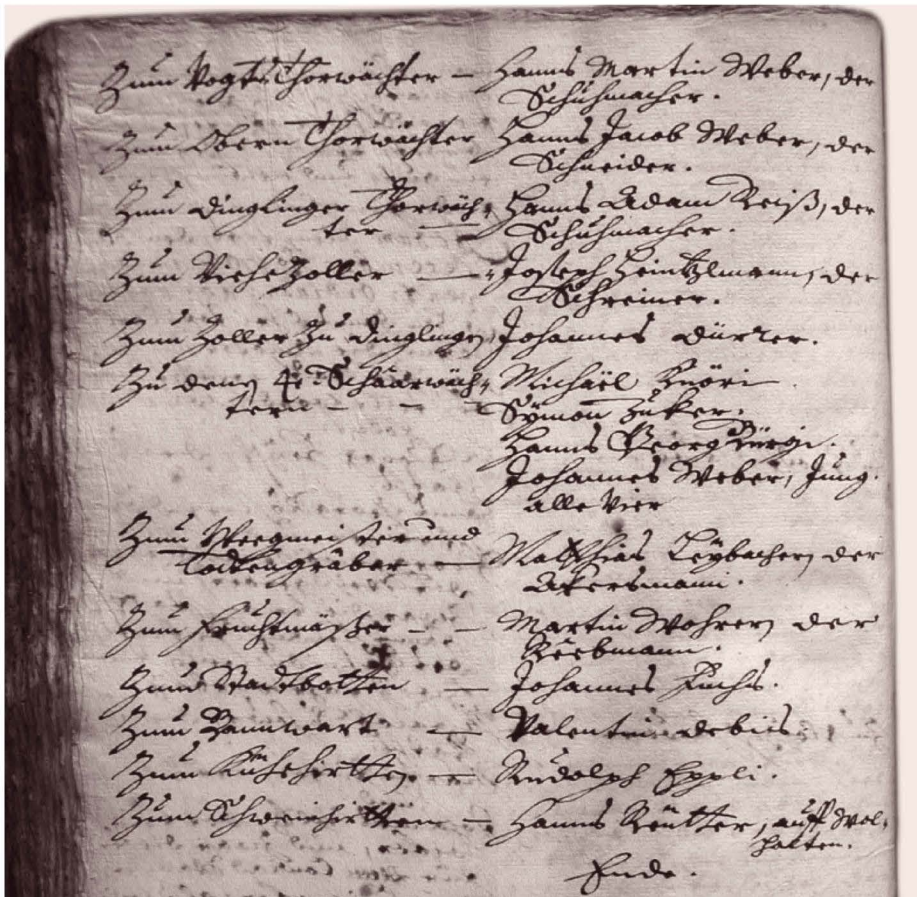 Zum Vogts Thorwächter — Hanns Martin Weber, der
Schuhmacher.
Zum Obern Thorwächter Hanns Jacob Weber, der
Schneider.
Zum Dinglinger Thorwäch= Hanns Adam Reiß, der
ter — Schuhmacher.
Zum Viehe Zoller — Joseph Heintzlmann, der
Schreiner.
Zum Zoller Zu Dinglingen Johannes Dürrer.
Zu denen 4. Schaarwäch= Michaël Knöri
tern — — — Sÿmon Zuker.
Hanns Georg Bürgi.
Johannes Weber, Jung.
alle vier
Zum Weegmeister und
Matthias Leÿbacher, der
Todtengräber — Akersmann.
Zum Fruchtmäßer — — Martin Wohrer, der
Reebmann.
Zum Stadtbotten — Johannes Fuchs.
Zum Bannwart — Valentin Debus.
Zum Kühehirtten — Rudolph Eppli.
Zum Schweinhirtten — Hanns Reutter, auff Wol=
halten.
Ende.